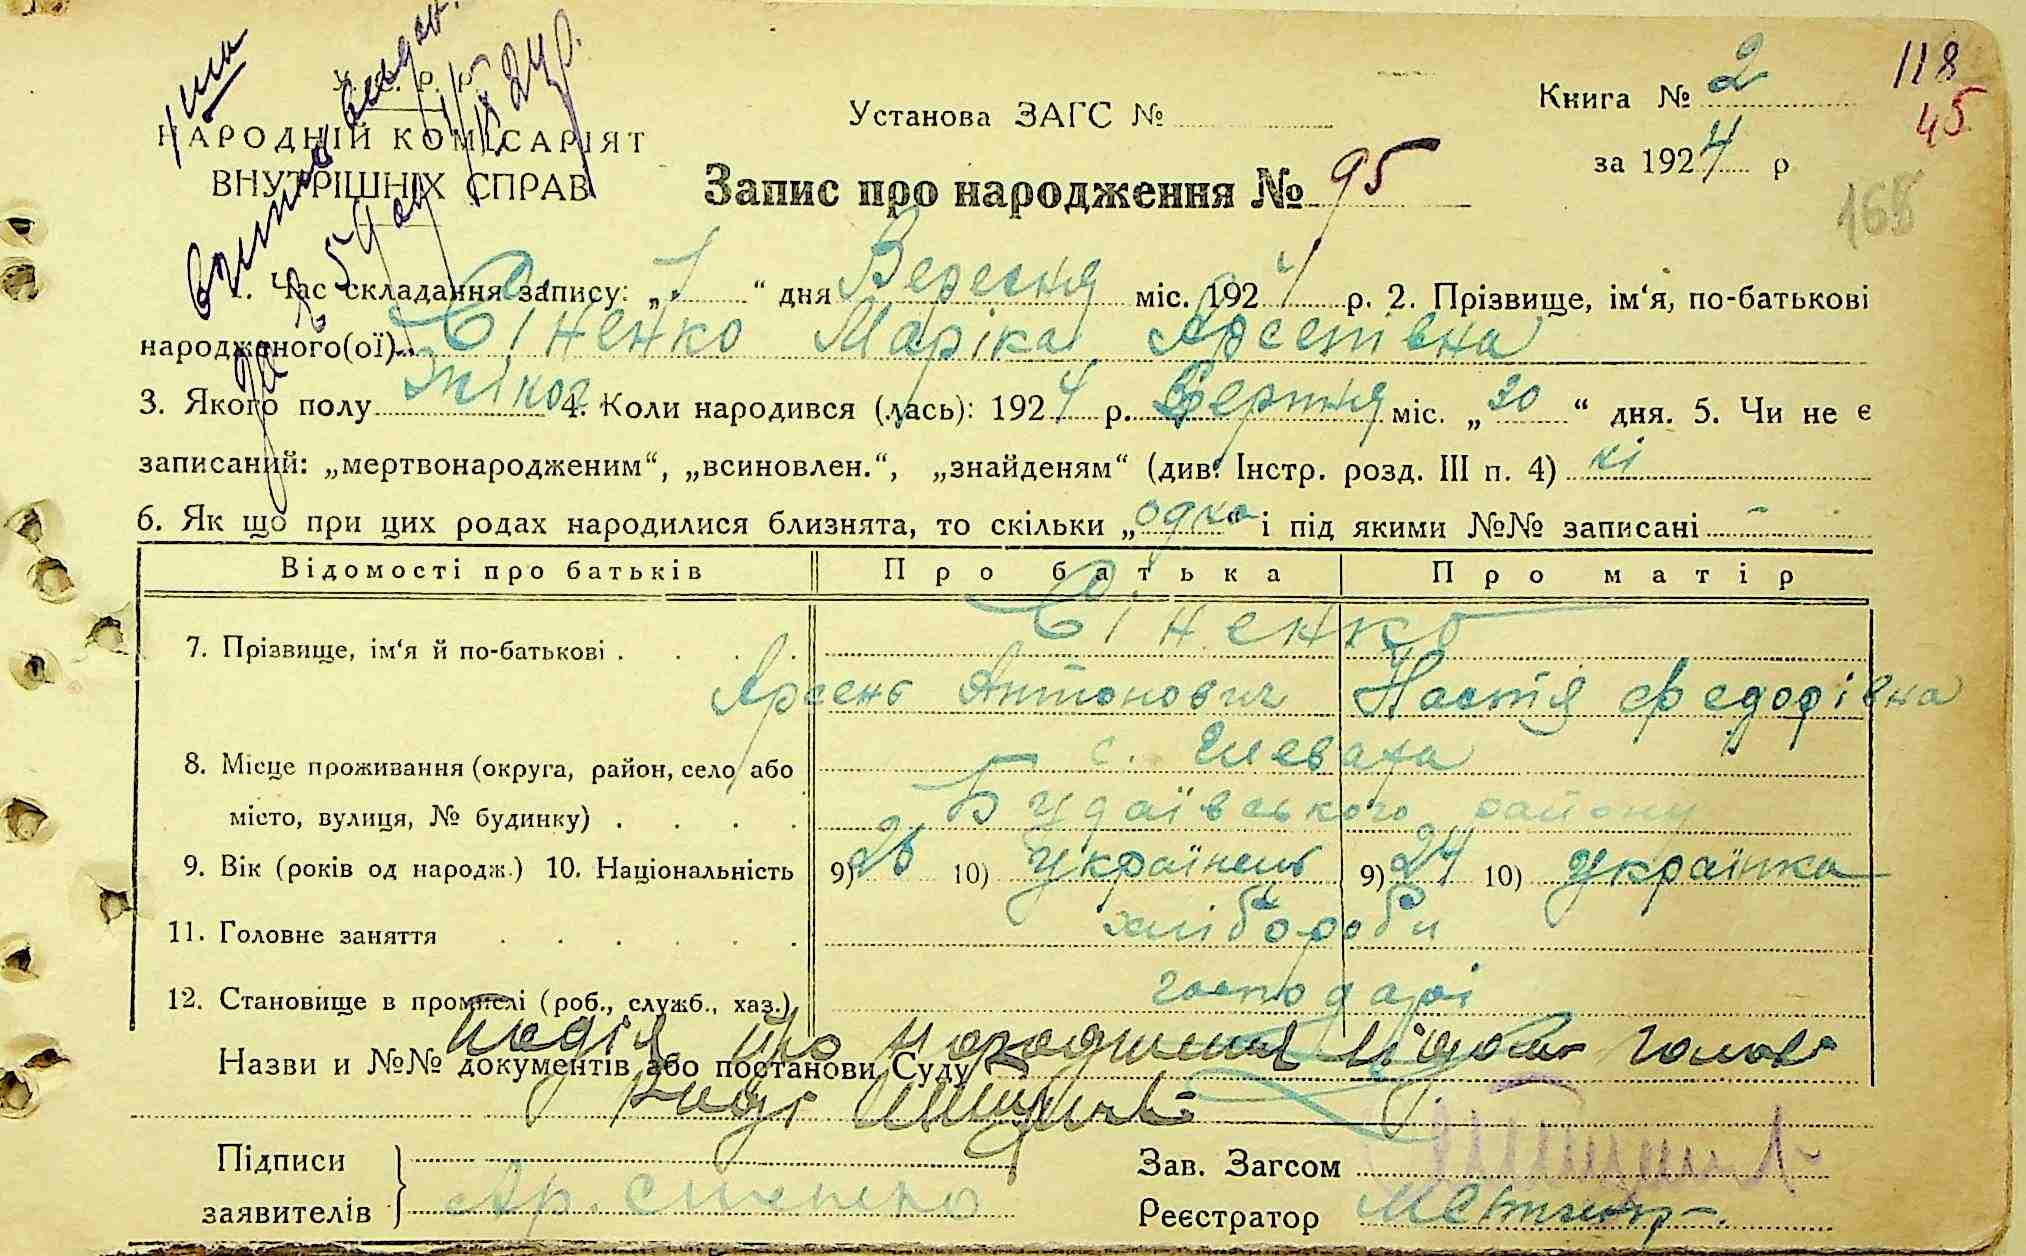 118
45
168
Книга № 2
Установа ЗАГС №
за 1924 р
У. С. Р. Р.
НАРОДНІЙ КОМІСАРІЯТ
ВНУТРІШНІХ СПРАВ
Запис про народження № 95
1. Час складання запису: „7“ дня Вересня міс. 1924 р. 2. Прізвище, ім‘я, по-батькові
народженого(ої) Сіненко Маріка
3. Якого полу 4. Коли народився (лась): 1924 р. міс. „30“ дня. 5. Чи не є
записаний: „мертвонародженим“, „всиновлен.“, „знайденям“ (див. Інстр. розд. III п. 4) ні
6. Як що при цих родах народилися близнята, то скільки „одно“ і під якими №№ записані -
Відомості про батьків Про батька Про матір
Сіненко
7. Прізвище, ім‘я й по-батькові
Арсень Антонович Настія Федорівна
с. Глеваха
8. Місце проживання (округа, район, село або
місто, вулиця, № будинку) Будаївського району
9. Вік (років од народж.) 10. Національність 9) 26 10) Українець 9) 24 10) Українка
11. Головне заняття хлібороби
12. Становище в промислі (роб., служб., хаз.) господарі
Назви и №№ документів або постанови Суду
Підписи
заявителів Ар. Сіненко
Зав. Загсом
Реєстратор